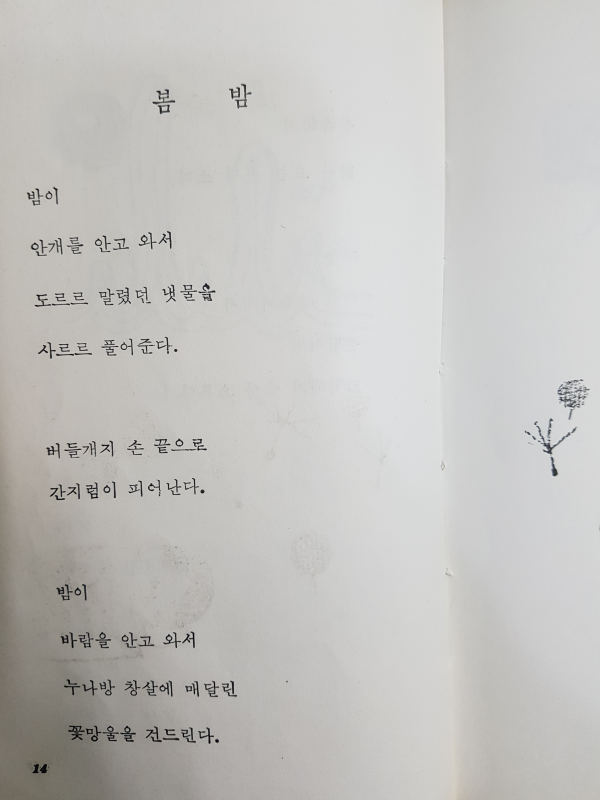 봄 밤
밤이
안개를 안고 와서
도르르 말렸던 냇물을
사르르 풀어준다.
버들개지 손 끝으로
간지럼이 피어난다.
밤이
바람을 안고 와서
누나방 창살에 매달린
꽃망울을 건드린다.
14